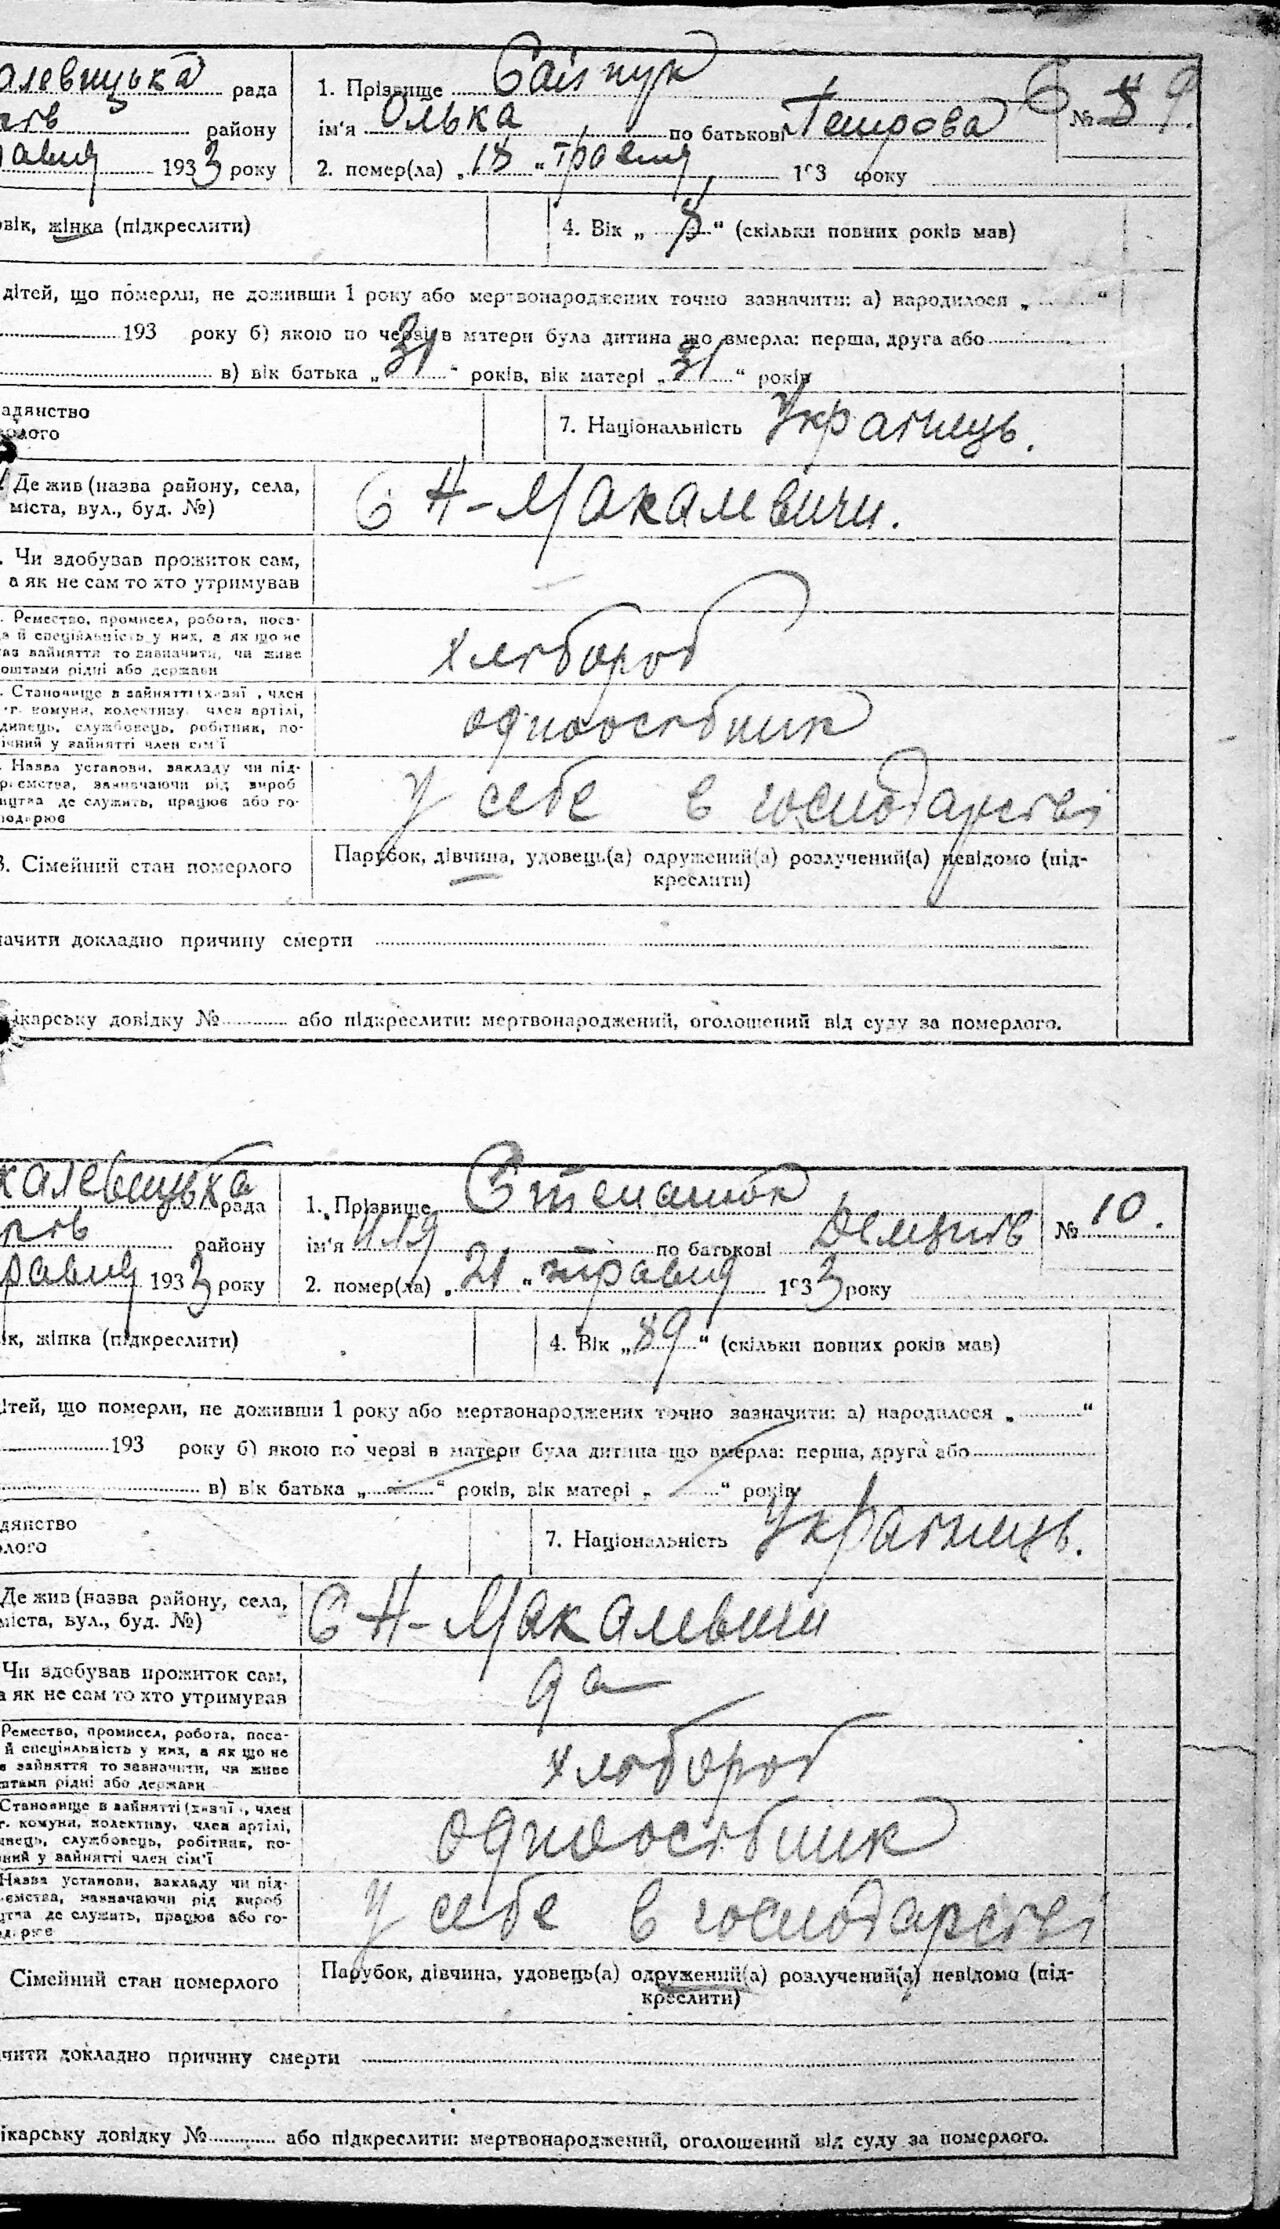 алевицька рада
1. Прізвище Саіпук
№ 9.
району
ім'я Олька по батькові Петрова
1933 року
2. помер(ла) „18“ травня 193 року
овік, жінка (підкреслити)
4. Вік „8“ (скільки повних років мав)
дітей, що померли, не доживши 1 року або мертвонароджених точно зазначити: а) народилося „ “
193 року б) якою по черзі в матери була дитина що вмерла: перша, друга або
в) вік батька „31“ років, вік матері „31“ років
адянство
7. Національність Українець.
Де жив (назва району, села,
міста, вул., буд. №)
С Н-Макалевичи.
. Чи здобував прожиток сам,
а як не сам то хто утримував
. Ремество, промисел, робота, поса-
а й спеціяльність у них, а як що не
мав зайняття то зазначити, чи живе
коштами рідні або держави
хлібороб
. Становище в зайнятті (хазяї , член
с.-г. комуни, колективу, член артілі,
одинець, службовець, робітник, по-
мічний у зайнятті член сім'ї
одноосібник
. Назва установи, закладу чи під-
приємства, зазначаючи рід вироб
ництва де служить, працює або го-
сподарює
у себе в господарстві
3. Сімейний стан померлого
Парубок, дівчина, удовець(а) одружений(а) розлучений(а) невідомо (під-
креслити)
начити докладно причину смерти
ікарську довідку № або підкреслити: мертвонароджений, оголошений від суду за померлого.
калевицька рада
1. Прізвище Степанюк
№ 10.
району
ім'я Іля по батькові Демків
равня 1933 року
2. помер(ла) „21“ травня 1933 року
ік, жінка (підкреслити)
4. Вік „89“ (скільки повних років мав)
ітей, що померли, не доживши 1 року або мертвонароджених точно зазначити: а) народилося „ “
193 року б) якою по черзі в матери була дитина що вмерла: перша, друга або
в) вік батька „ “ років, вік матері „ “ років
дянство
лого
7. Національність Українець.
Де жив (назва району, села,
міста, вул., буд. №)
С Н-Макалевичи
Чи здобував прожиток сам,
а як не сам то хто утримував
да
Ремество, промисел, робота, поса-
й спеціяльність у них, а як що не
в зайняття то зазначити, чи живе
штами рідні або держави
хлібороб
Становище в зайнятті (хазяї , член
г. комуни, колективу, член артілі,
инець, службовець, робітник, по-
чний у зайнятті член сім'ї
одноосібник
Назва установи, закладу чи під-
ємства, зазначаючи рід вироб
цтва де служить, працює або го-
одарює
у себе в господарстві
Сімейний стан померлого
Парубок, дівчина, удовець(а) одружений(а) розлучений(а) невідомо (під-
креслити)
чити докладно причину смерти
ікарську довідку № або підкреслити: мертвонароджений, оголошений від суду за померлого.